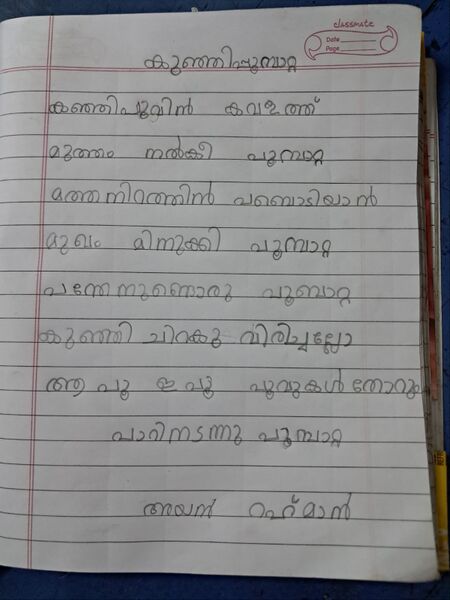 classmate
Date
Page
കുഞ്ഞിപ്പൂമ്പാറ്റ
കുഞ്ഞിപൂവിൻ കവളത്ത്
മുത്തം നൽകീ പൂമ്പാറ്റ
മത്തനിറത്തിൻ പബൊടിയാൻ
മുഖം മിനുക്കി പൂമ്പാറ്റ
പൂബാറ്റ
കുഞ്ഞി ചിറകു വിരിച്ചല്ലോ
ആ പൂ ഇ പൂ പൂവുകൾ തോറും
പാറിനടന്നു പൂമ്പാറ്റ
അയൻ റഹ്മാൻ